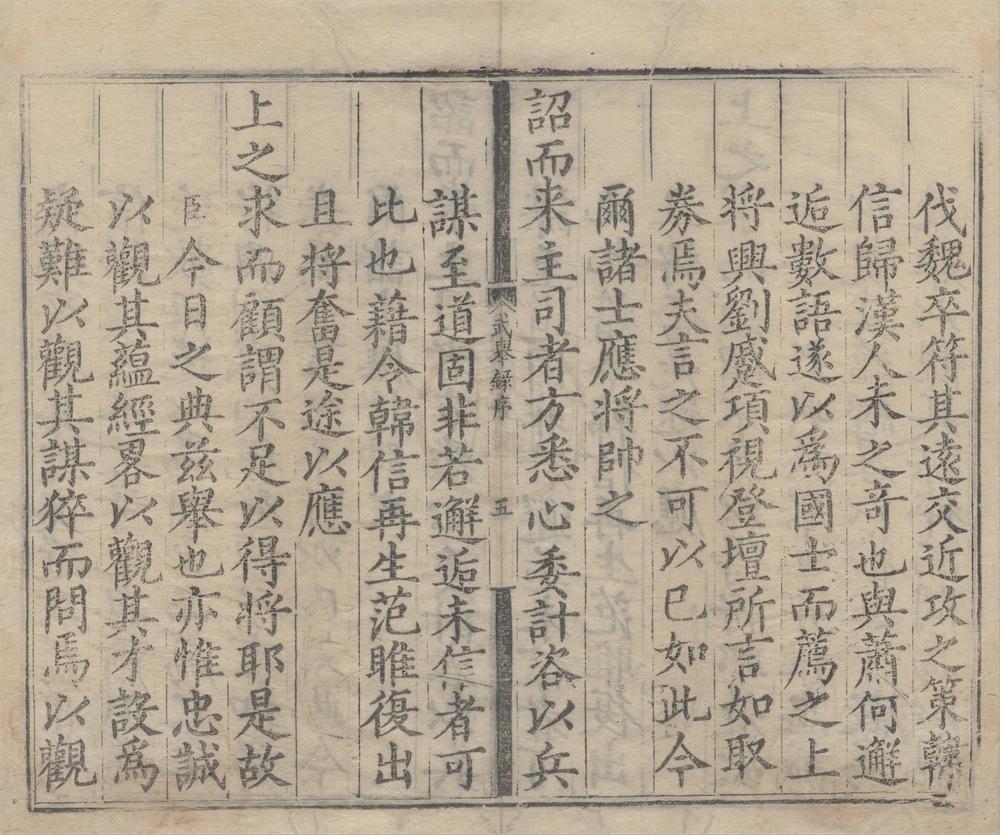 伐魏卒符其遠交近攻之策韓
信歸漢人未之竒也與蕭何邂
逅數語遂以為國士而薦之上
将興劉蹙項視登壇所言如取
券焉夫言之不可以已如此今
爾諸士應将帥之
詔而来主司者方悉心委計咨以兵
武舉錄序 五
謀至道固非若邂逅未信者可
比也藉令韓信再生范雎復出
且将奮是途以應
上之求而顧謂不足以得将耶是故
臣今日之典兹舉也亦惟忠誠
以觀其蘊經畧以觀其才設為
疑難以觀其謀猝而問焉以觀